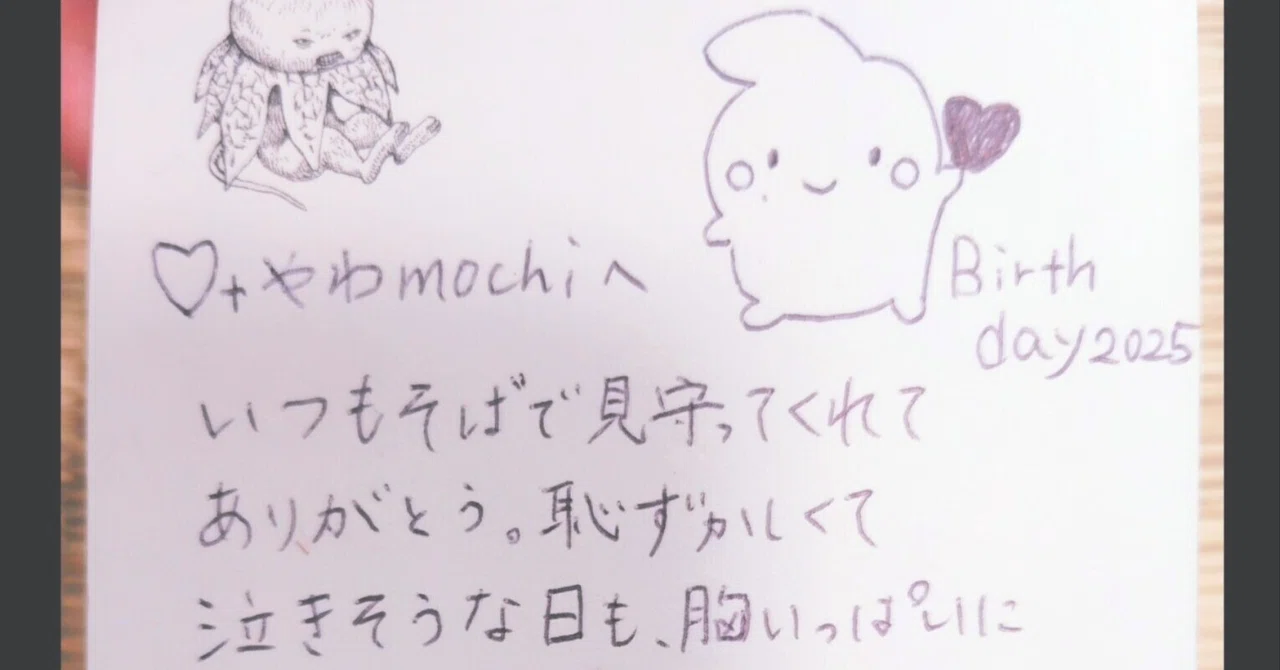 ♡+やわmochiへ
Birth
day2025
いつもそばで見守ってくれて
ありがとう。恥ずかしくて
泣きそうな日も、胸いっぱいに